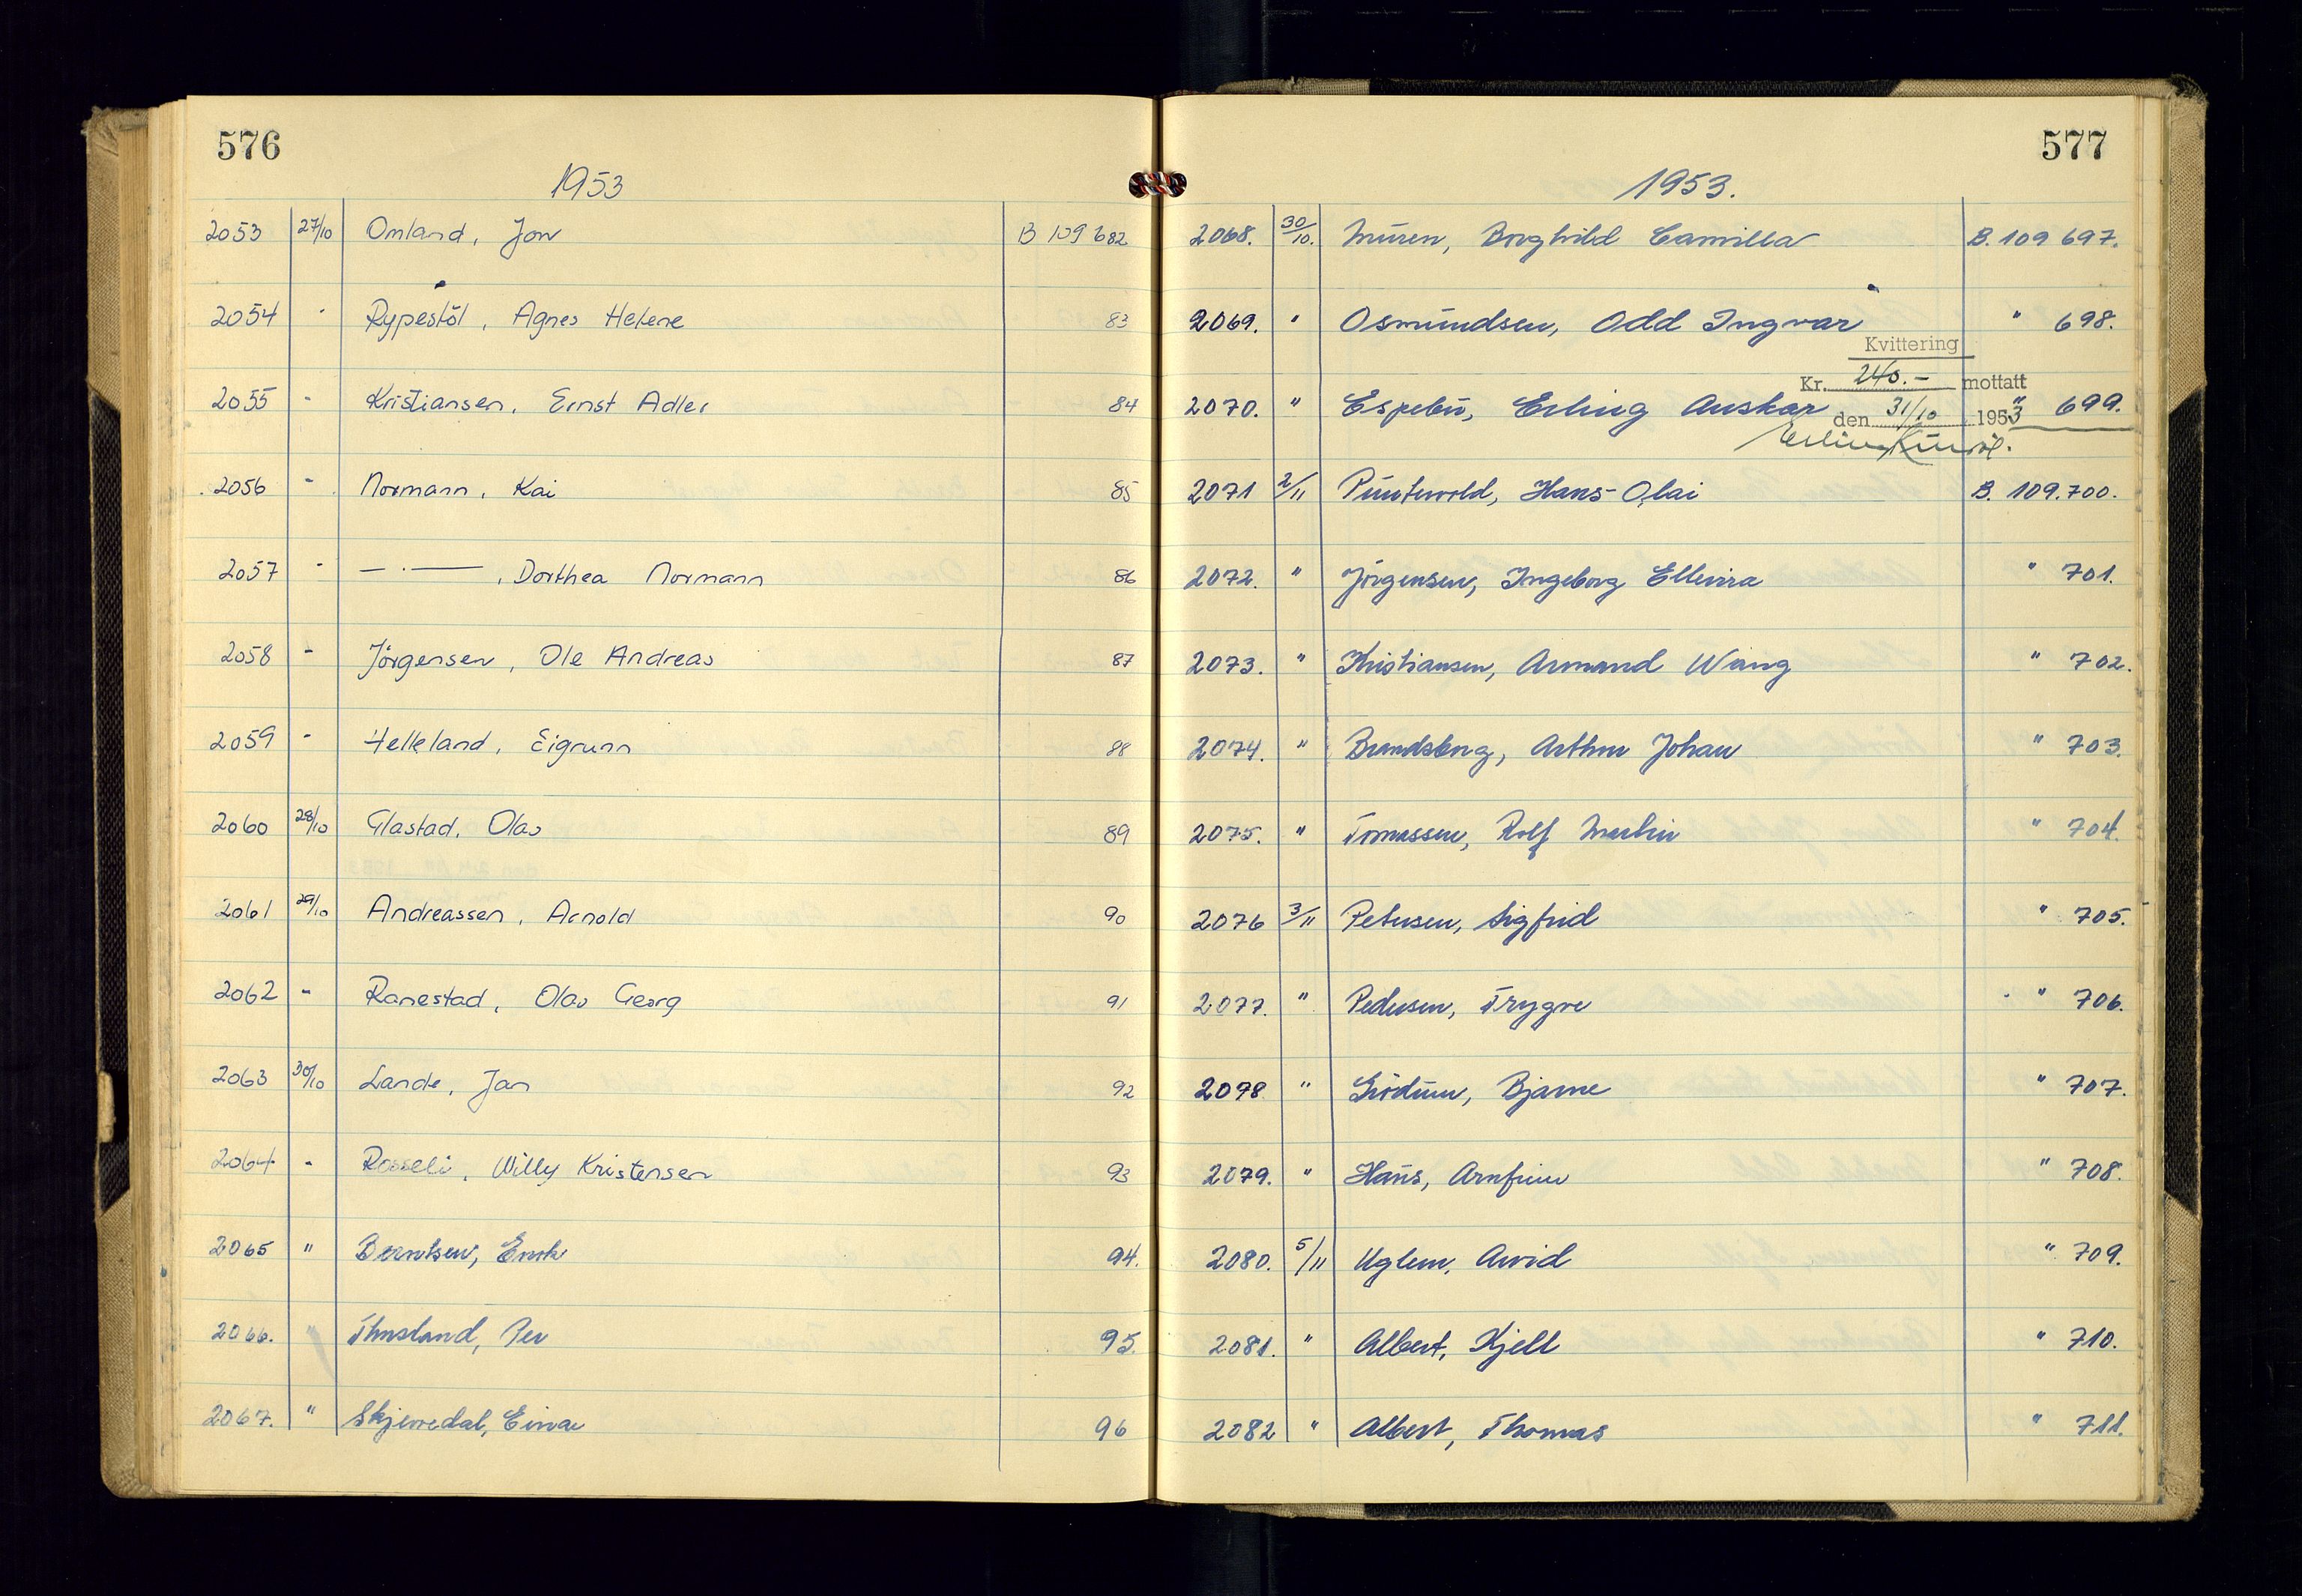 576
1953
2053 27/10 Omland, Jon B 109 682
2054 " Rypestöl, Agnes Helene 83
2055 " Kristiansen, Ernst Adler 84
2056 " Normann, Kai 85
2057 " — · —, Dorthea Normann 86
2058 " Jörgensen, Ole Andreas 87
2059 " Helleland, Eigrunn 88
2060 28/10 Glastad, Olav 89
2061 29/10 Andreassen, Arnold 90
2062 " Ranestad, Olav Georg 91
2063 30/10 Lande, Jan 92
2064 " Rosseli, Willy Kristensen 93
2065 " Berntsen, 94.
2066. " Per 95.
2067. " Skjerredal, Einar 96
577
1953.
2068. 30/10. Muren, Borghild Camilla B. 109 697.
2069. " Osmundsen, Odd Ingvar " 698.
Kvittering
Kr. 240.- mottatt
2070. " Espebu, Erling Anskar " 699.
den 31/10 1953
2071 2/11 Hans Olai B. 109.700.
2072. " Jörgensen, Ingeborg Ellevira " 701.
2073. " Kristiansen, Armand Wang " 702.
2074. " Arthur Johan " 703.
2075. " Tomassen, Rolf Martin " 704.
2076 3/11 Petersen, Sigfrid " 705.
2077. " Pedersen, Trygve " 706.
2098 " Grödum, Bjarne " 707.
2079. " Arnfinn " 708.
2080. 5/11 Uglem, Arvid " 709.
2081. " Albert, Kjell " 710.
2082 " Albert, Thomas " 711.